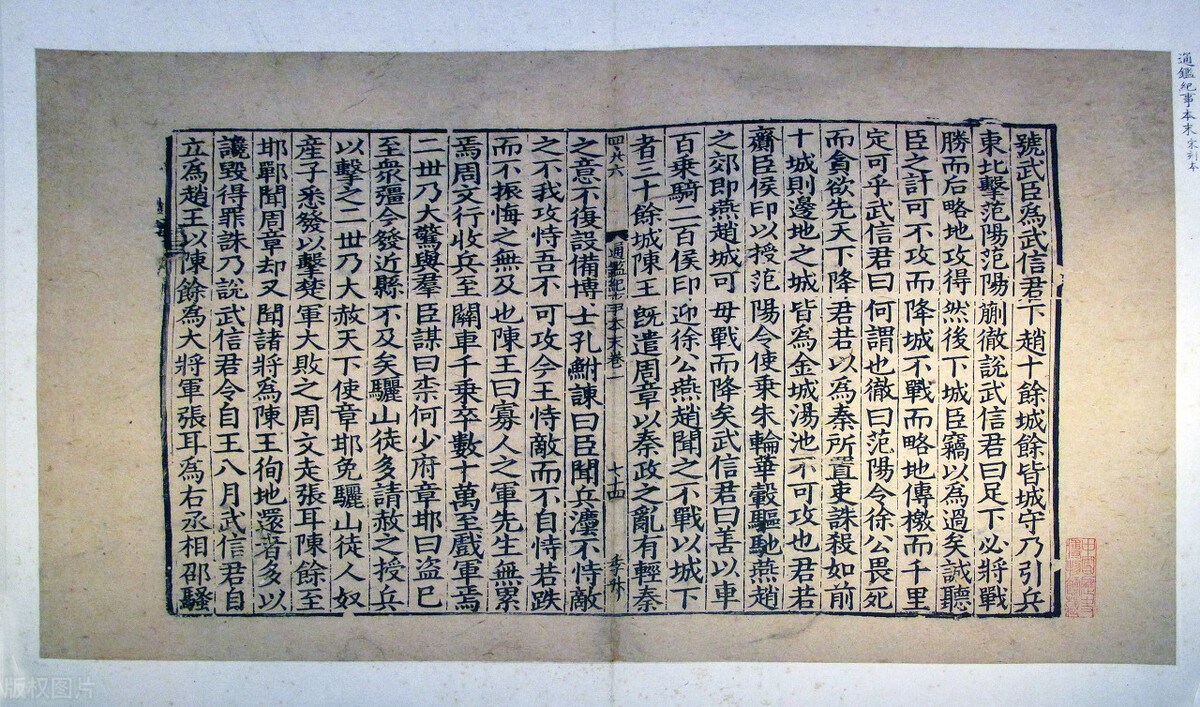 通鑑紀事本末 宋刻本
號武臣爲武信君下趙十餘城餘皆城守乃引兵
東北擊范陽范陽蒯徹說武信君曰足下必將戰
勝而后略地攻得然後下城臣竊以爲過矣誠聽
臣之計可不攻而降城不戰而略地傳檄而千里
定可乎武信君曰何謂也徹曰范陽令徐公畏死
而貪欲先天下降君君若以爲秦所置吏誅殺如前
十城則邊地之城皆爲金城湯池不可攻也君若
齎臣侯印以授范陽令使乘朱輪華轂驅馳燕趙
之郊即燕趙城可毋戰而降矣武信君曰善以車
百乘騎二百侯印迎徐公燕趙聞之不戰以城下
者三十餘城陳王旣遣周章以秦政之亂有輕秦
通鑑紀事本末卷一
七十四
之意不復設備博士孔鮒諫曰臣聞兵灋不恃敵
之不我攻恃吾不可攻今王恃敵而不自恃若跌
而不振悔之無及也陳王曰寡人之軍先生無累
焉周文行收兵至關車千乘卒數十萬至戲軍焉
二世乃大驚與羣臣謀曰柰何少府章邯曰盗已
至衆彊今發近縣不及矣驪山徒多請赦之授兵
以擊之二世乃大赦天下使章邯免驪山徒人奴
産子悉發以擊楚軍大敗之周文走張耳陳餘至
邯鄲聞周章却又聞諸將爲陳王徇地還者多以
讒毀得罪誅乃說武信君令自王八月武信君自
立爲趙王以陳餘爲大將軍張耳爲右丞相邵騷
版权图片